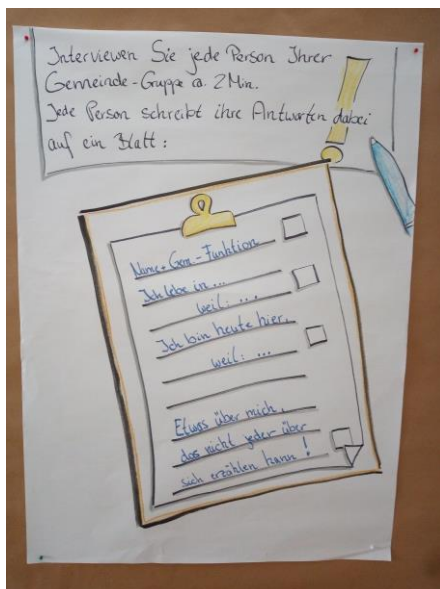 Interviewen Sie jede Person Ihrer
Gemeinde-Gruppe ca. 2 Min.
Jede Person schreibt ihre Antworten dabei
auf ein Blatt:
Name + Gem-Funktion
Ich lebe in...
weil: ...
Ich bin heute hier,
weil: ...
Etwas über mich,
das nicht jeder über
sich erzählen kann!